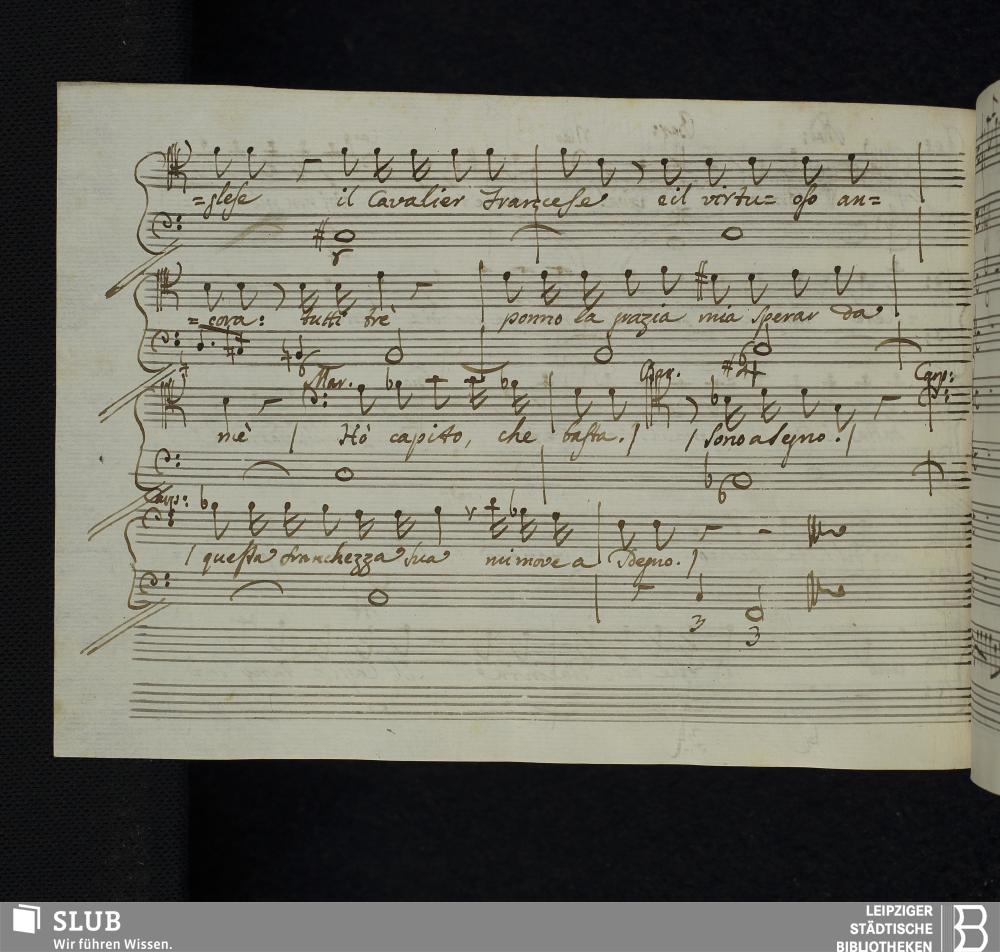 =glese il Cavalier Francese e il virtu= oso an=
=cora: tutti trè ponno la grazia mia sperar da
Mar. Cav. Cap:
mè / Hò capito, che basta. / / Sono a segno. /
Cap:
/ questa franchezza sua mi move a sdegno. /
3
3
SLUB
Wir führen Wissen.
LEIPZIGER
STÄDTISCHE
BIBLIOTHEKEN